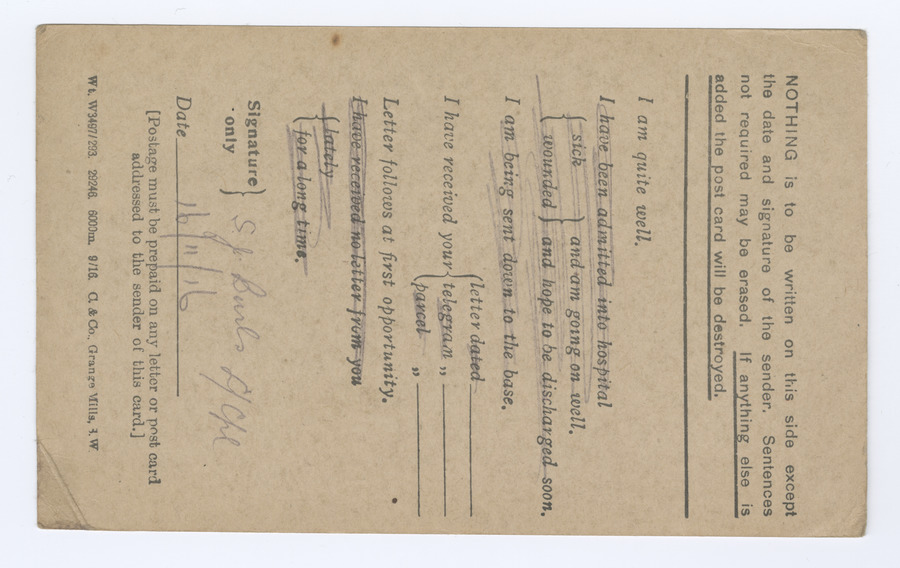 NOTHING is to be written on this side except
the date and signature of the sender. Sentences
not required may be erased. If anything else is
added the post card will be destroyed.
I am quite well.
I have been admitted into hospital
{ sick } and am going on well.
{ wounded } and hope to be discharged soon.
I am being sent down to the base.
I have received your { letter dated
telegram „
parcel „
Letter follows at first opportunity.
I have received no letter from you
{ lately
{ for a long time.
Signature
only } S. J. L/Cpl
Date 16/11/16
[Postage must be prepaid on any letter or post card
addressed to the sender of this card.]
Wt. W3497/293. 29246. 6000m. 9/16. C. & Co., Grange Mills, S.W.